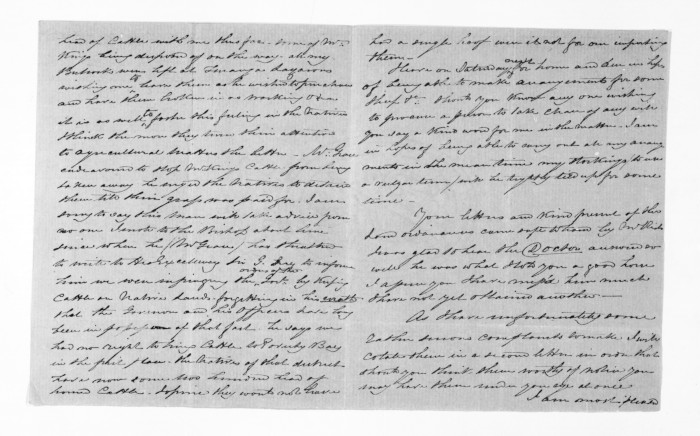 head of Cattle with me this far. some of Mr
King's being disposed of on the way. all my
Bullocks were left at Turanga
wishing me to leave them as he wished to purchase
and have them broken in as working
it is as well to foster this feeling in the Natives
I think the more they turn their attention
to agricultural matters the better - Mr. Grace
endeavoured to stop McKings Cattle from being
taken away he urged the Natives to detain
them till their grass was paid for. I am
sorry to say this man will take advice from
no one I wrote to the Bishop about him
since when he (Mr Grace) has threatened
to write to His Excellency Sir G. Grey to inform
him we were infringing the orders of the Govt. by keeping
Cattle on Native Lands forgetting in his
that the Governor and his Officers have long
been in possession of that fact. he says we
had no right to bring Cattle to Poverty Bay
in the first place. the Natives of that district
have now some two hundred head of
horned Cattle. I suppose they would not have
had a single hoof were it not for our importing
them -
I leave on Saturday next for home and am in hopes
of being able to make arrangements for some
Sheep &c. should you know any one wishing
to procure a person to take charge of any will
you say a kind word for me in the matter. I am
in hopes of being able to carry out all my arrange
ments in the mean time my Stockings to use
a vulgar term, will be tightly tied up for some
time -
Your letters and kind present of this
came safe to hand by Mr
I was glad to hear the Doctor answered so
well he was what I told you a good horse
I assure you I have missed him much
I have not yet obtained another -
As I have unfortunately some
rather serious complaints to make I will
them in a second letter in order that
should you think them worthy of notice you
may have them under your eye at once
I am most